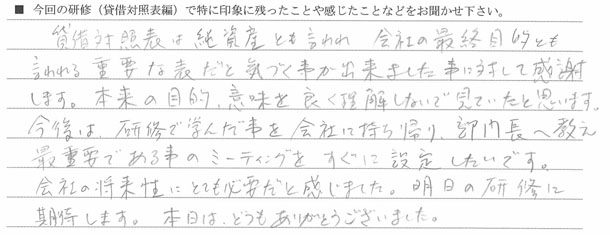 ■ 今回の研修（貸借対照表編）で特に印象に残ったことや感じたことなどをお聞かせ下さい。
貸借対照表は純資産とも言われ 会社の最終目的とも
言われる重要な表だと気づく事が出来ました事に対して感謝
します。本来の目的、意味を良く理解しないで見ていたと思います。
今後は、研修で学んだ事を会社に持ち帰り、部内長へ教え
最重要である事のミーティングをすぐに設定したいです。
会社の将来性にとても必要だと感じました。明日の研修に
期待します。本日は、どうもありがとうございました。